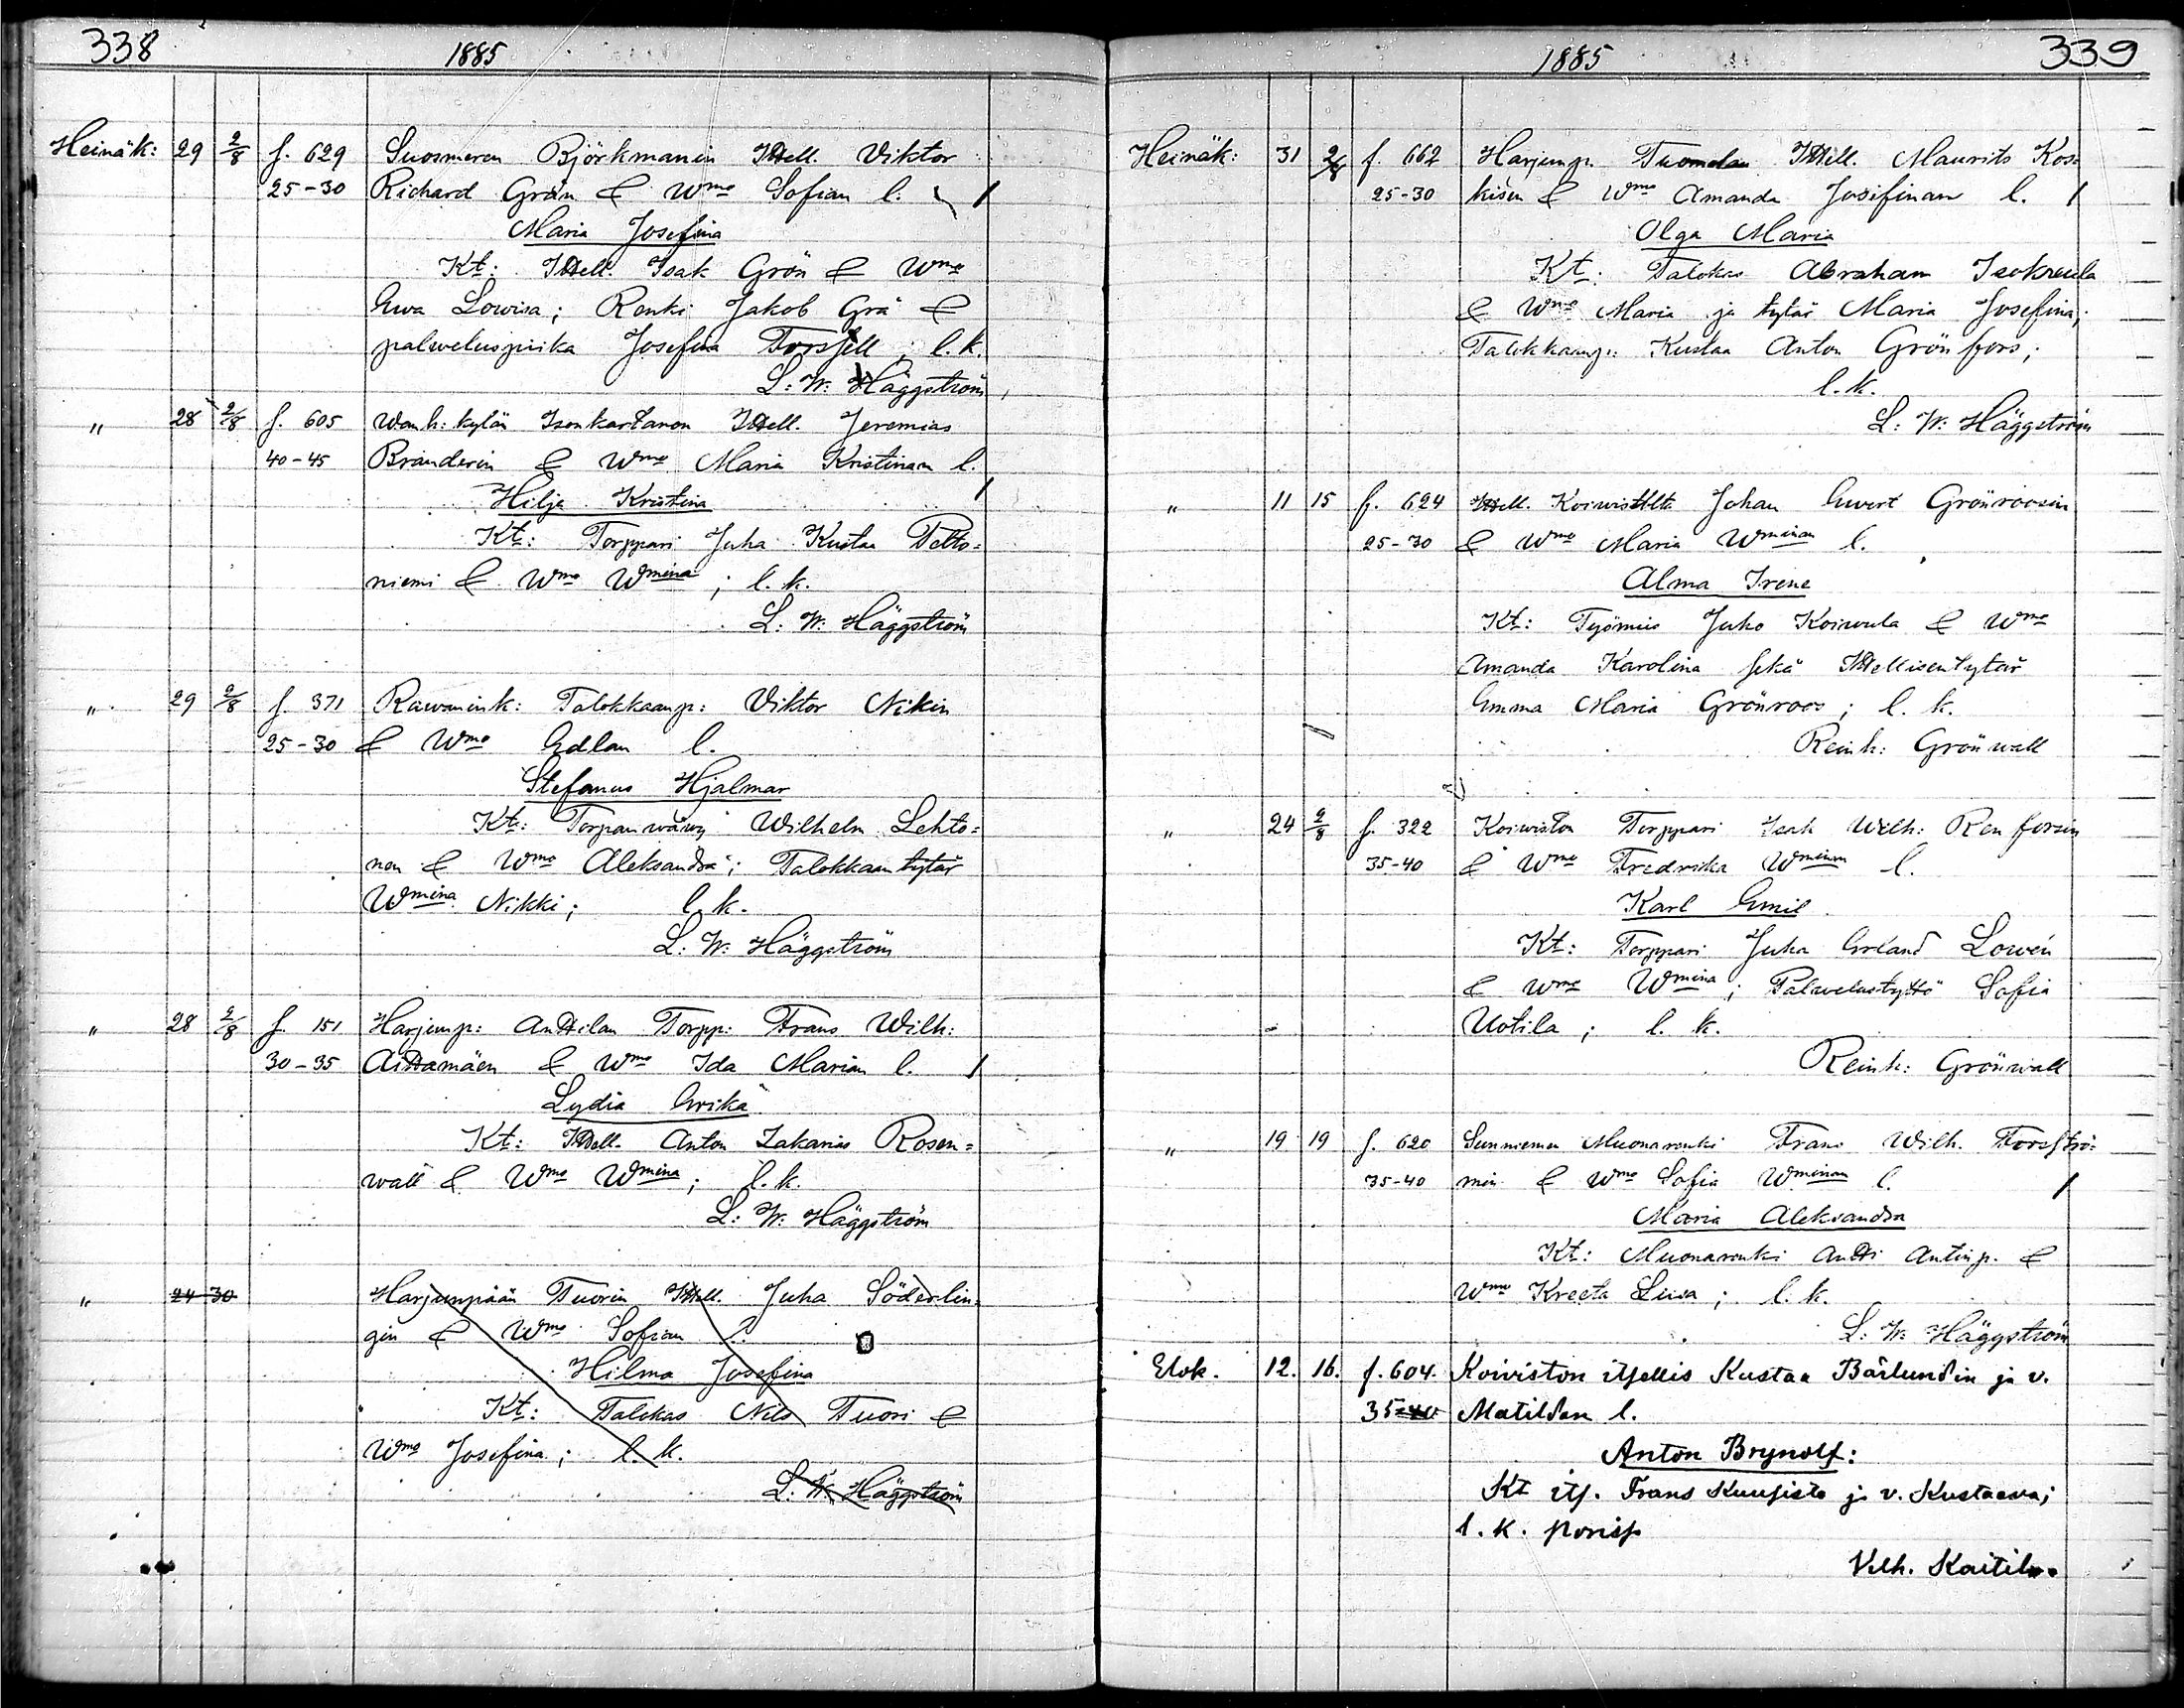 338
1885
Heinäk: 29 2/8 f. 629 Suosmeren Björkmanin Ittell. Viktor
25-30 Richard Grön & Wmo Sofian l.
Maria Josefina
Kt: Ittell. Isak Grön & Wmo
Ewa Lowisa; Renki Jakob Grä &
palweluspiika Josefina Forsfell; l.k.
L: W: Häggström
„ 28 2/8 f. 605 Wanh: kylän Isonkartanon Ittell. Jeremias
40-45 Branderin & Wmo Maria Kristinan l.
Hilja Kristina
Kt: Torppari Juha Kustaa Petto=
niemi & Wmo Wmina; l. k.
L. W: Häggström
„ 29 2/8 f. 371 Rawanink: Talokkaanp: Viktor Nikin
25-30 & Wmo Edlan l.
Stefanus Hjalmar
Kt: Torpanwäwy Wilhelm Lehto=
nen & Wmo Aleksandra; Talokkaantytär
Wmina Nikki; l. k.
L: W: Häggström
„ 28 2/8 f. 151 Harjunp: Anttilan Torpp: Frans Wilh:
30-35 Aittamäen & Wmo Ida Marian l.
Lydia Erika
Kt: Ittell. Anton Zakarias Rosen=
wall & Wmo Wmina; l. k.
L: W: Häggström
„ 24 30 Harjunpään Tuorin Ittell. Juha Söderlin=
gin & Wmo Sofian l.
Hilma Josefina
Kt: Talokas Nils Tuori &
Wmo Josefina; l. k.
L: W: Häggström
1885
339
Heinäk: 31 2/8 f. 662 Harjunp. Tuomolan Ittell. Maurits Kos=
25-30 kisen & Wmo Amanda Josifinan l.
Olga Maria
Kt: Talokas Abraham Isokreula
& Wmo Maria ja tytär Maria Josefina;
Talokkaanp: Kustaa Anton Grönfors;
l.k.
L: W: Häggström
„ 11 15 f. 624 Ittell. Koiwistolta Johan Ewert Grönroosin
25-30 & Wmo Maria Wminan l.
Alma Irene
Kt: Työmies Juho Koiwula & Wmo
Amanda Karolina sekä Ittellisentytär
Emma Maria Grönroos; l. k.
Reinh: Grönwall
„ 24 2/8 f. 322 Koiwiston Torppari Isak Wilh: Renforsin
35-40 & Wmo Fredrika Wminan l.
Karl Emil
Kt: Torppari Juha Erland Lowén
& Wmo Wmina; Palwelustyttö Sofia
Uotila; l. k.
Reinh: Grönwall
„ 19 19 f. 620 Sunniemen Muonarenki Frans Wilh. Forsströ=
35-40 min & Wmo Sofia Wminan l.
Maria Aleksandra
Kt: Muonarenki Antti Antinp. &
Wmo Kreeta Liisa; l. k.
L: W: Häggström
Elok. 12. 16. f. 604. Koiviston itsellis Kustaa Bärlundin ja v.
35-40 Matildan l.
Anton Brynolf:
Kt its. Frans Kuusisto ja v. Kustaava;
l. k. Porissa
Vilh. Kaitila.